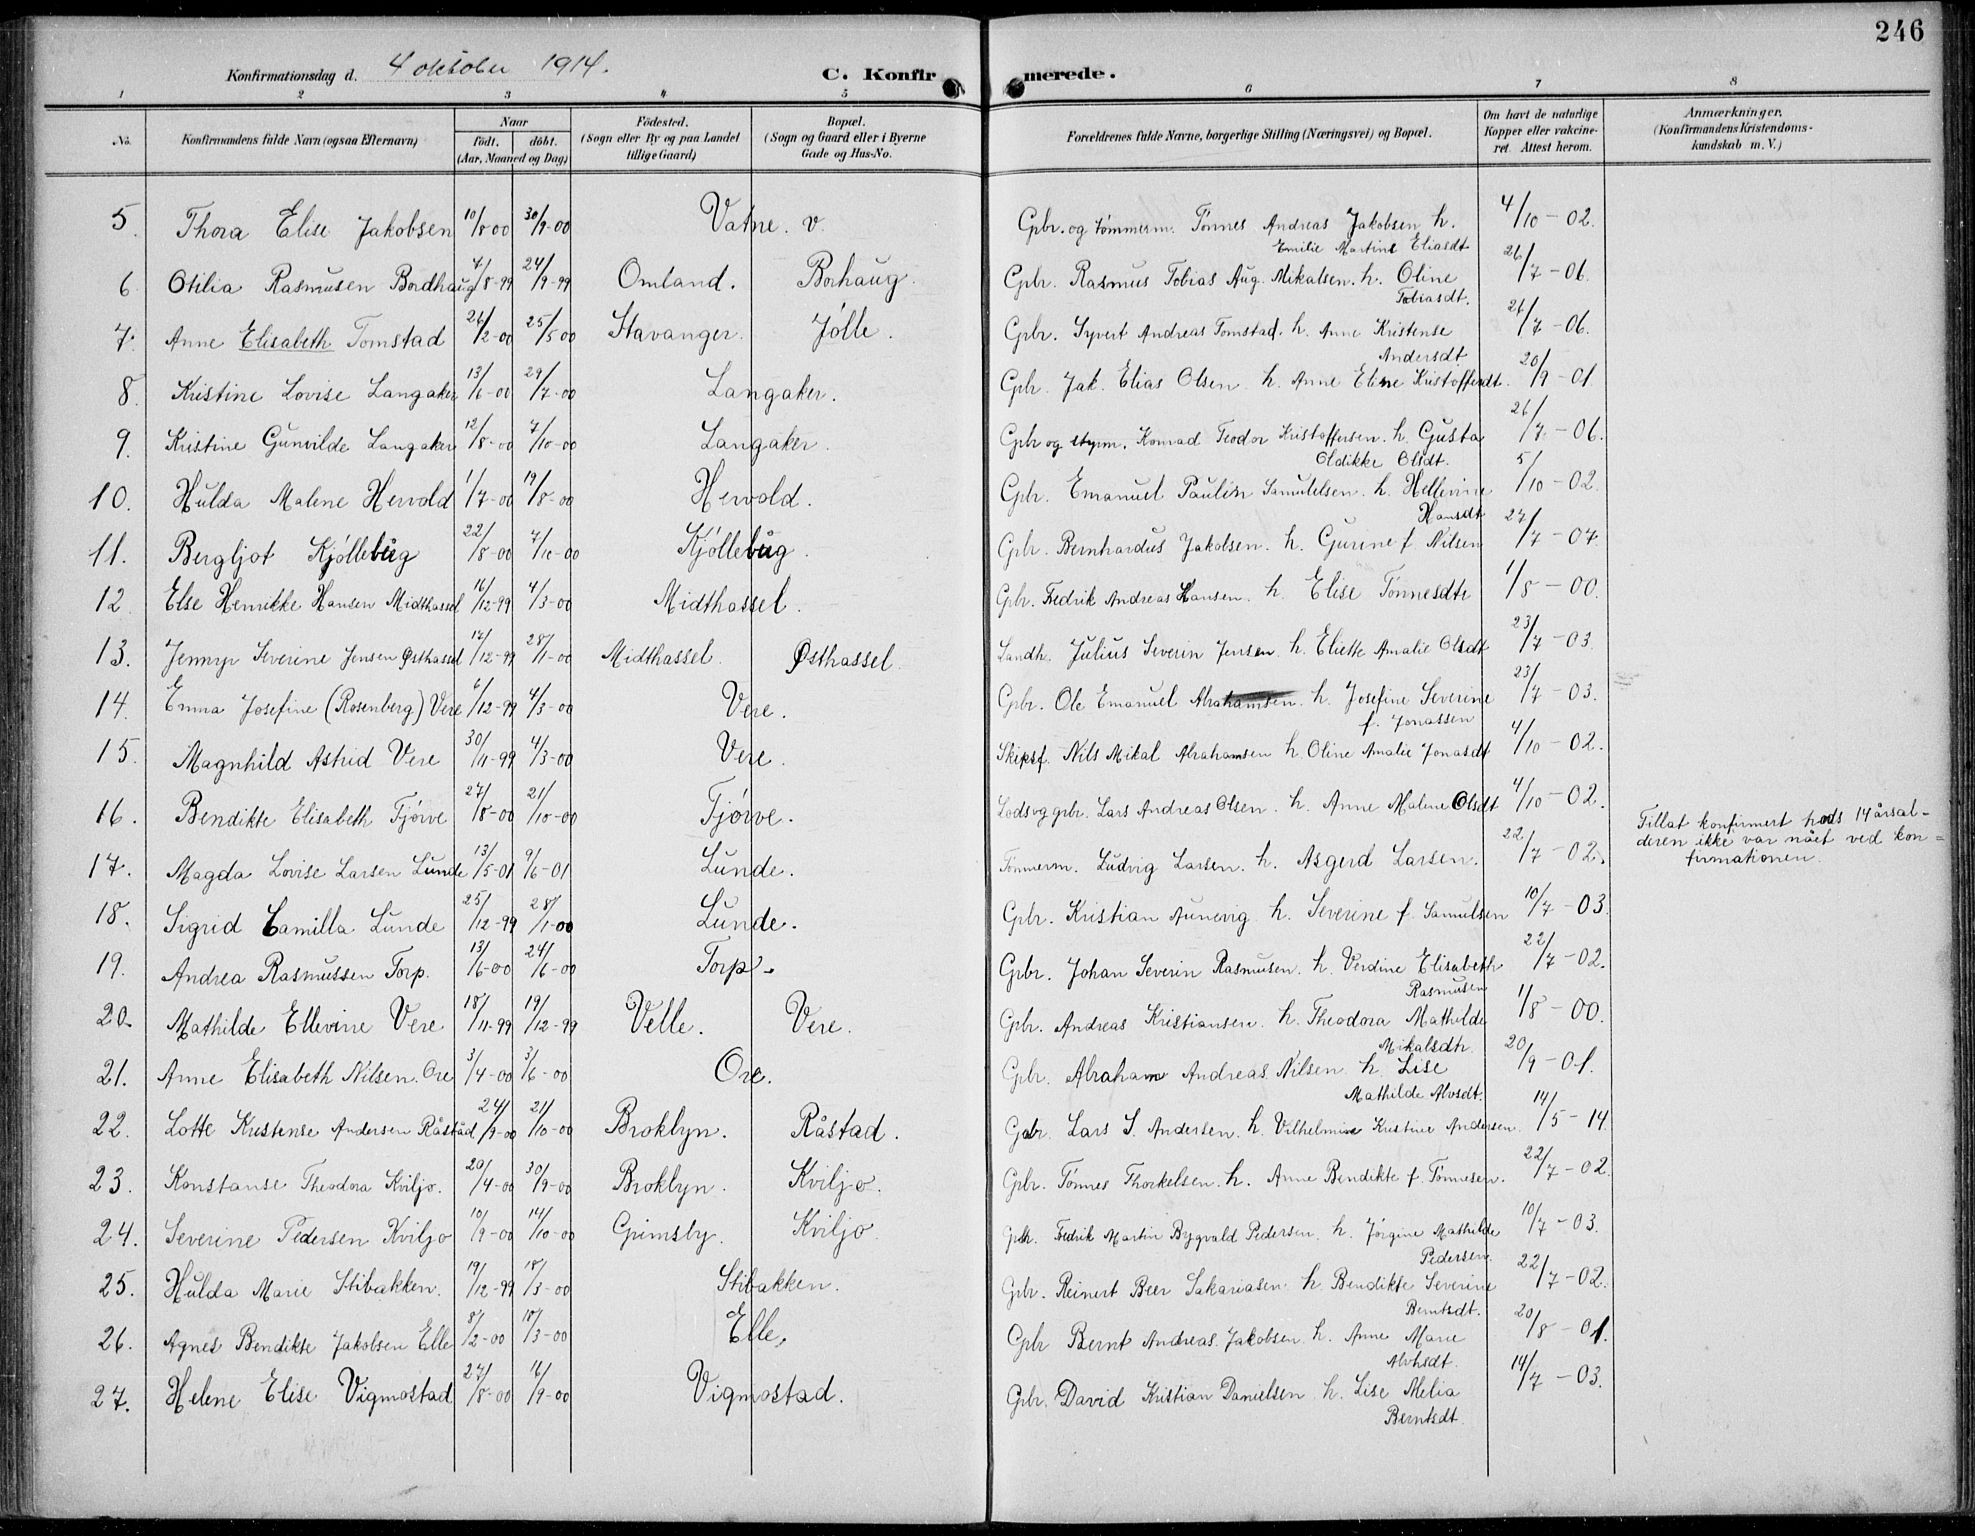 246
Konfirmationsdag d. 4 oktober 1914.
C. Konfirmerede.
1 2 3 4 5 6 7 8
No. Konfirmandens fulde Navn (ogsaa Efternavn) Naar født. døbt. (Aar, Maaned og Dag) Fødested. (Sogn eller By og paa Landet tillige Gaard) Bopæl. (Sogn og Gaard eller i Byerne Gade og Hus-No. Forældrenes fulde Navne, borgerlige Stilling (Næringsvei) og Bopæl. Om havt de naturlige Kopper eller vakcineret. Attest herom. Anmærkninger. (Konfirmandens Kristendomskundskab m. V.)
5. Thora Elise Jakobsen 10/8 00 30/9-00 Vatne. v. Gpbr. og tømmerm. Tønnes Andreas Jakobsen h. 4/10-02.
Emilie Martine Eliasdt
6. Otilia Rasmusen Bordhaug 4/8-99 24/9-99 Omland. Borhaug. Gpbr. Rasmus Tobias Aug. Mikalsen. h. Oline 26/7-06.
Tobiasdt.
7. Anne Elisabeth Tomstad 26/2-00 25/5 00 Stavanger. Jølle. Gpbr. Syvert Andreas Tomstad. h. Anne Kristense 26/7-06.
Andersdt
8. Kristine Lovise Langaker 13/6-00 29/7-00 Langaker. Gpbr. Jak. Elias Olsen h. Anne Eline Kristoffersdt. 20/9-01
9. Kristine Gunvilde Langaker 12/8-00 7/10-00 Langaker. Gpbr og styrm. Konrad Teodor Kristoffersen. h. Gusta 26/7-06.
Oldikke Olsdt.
10. Hulda Malene Hervold 1/7-00 19/8-00 Hervold. Gpbr. Emanuel Paulin Samuelsen. h. Hellevine 5/10-02.
Hansdt
11. Bergljot Kjøllebug 22/8-00 7/10-00 Kjøllebug. Gpbr. Bernhardus Jakobsen. h. Gurine f. Nilsen 27/7-07.
12. Else Henrikke Hansen Midthassel 16/12-99 4/3-00 Midthassel. Gpbr. Fredrik Andreas Hansen. h. Elise Tønnesdtr 1/8-00.
13. Jennyr Severine Jensen Østhassel 17/12-99 28/1-00 Midthassel. Østhassel. Landh. Julius Severin Jensen h. Eliette Amalie Olsdt 23/7-03.
14. Emma Josefine (Rosenberg) Vere 6/12-99 4/3-00 Vere. Gpbr. Ole Emanuel Abrahamsen. h. Josefine Severine 23/7-03.
f. Jonassen
15. Magnhild Astrid Vere 30/11-99 4/3-00 Vere. Skipsf. Nils Mikal Abrahamsen h. Oline Amalie Jonasdt 4/10-02.
16. Bendikte Elisabeth Tjørve 27/8-00 21/10-00 Tjørve. Lods og gpbr. Lars Andreas Olsen. h. Anne Malene Olsdt 4/10-02.
17. Magda Lovise Larsen Lunde 13/5-01 9/6-01 Lunde. Tømmerm. Ludvig Larsen. h. Asgerd Larsen. 22/7-02. Tillat konfirmert hvis 14 årsal-
deren ikke var nået ved kon=
firmationen.
18. Sigrid Camilla Lunde 25/12-99 28/1-00 Lunde. Gpbr. Kristian Aunevig h. Severine f. Samuelsen 10/7-03.
19. Andrea Rasmussen Torp. 13/6-00 24/6-00 Torp. Gpbr. Johan Severin Rasmusen. h. Verdine Elisabeth 22/7-02.
Rasmusen
20. Mathilde Ellevine Vere 18/11-99 19/12-99 Velle. Vere. Gpbr. Andreas Kristiansen. h. Theodora Mathilde 1/8-00.
Mikalsdtr.
21. Anne Elisabeth Nilsen. Ore 3/4-00 3/6-00 Ore. Gpbr. Abraham Andreas Nilsen h. Lise 20/9-01.
Mathilde Alvsdt.
22. Lotte Kristense Andersen Råstad 24/9-00 21/10-00 Broklyn. Råstad. Gpbr. Lars S. Andersen. h. Vilhelmine Kristine Andersen. 14/5-14
23. Konstanse Theodora Kviljo. 20/4-00 30/9-00 Broklyn. Kviljo. Gpbr. Tønnes Thorkelsen. h. Anne Bendikte f. Tønnesen. 22/7-02.
24. Severine Pedersen Kviljo 10/9-00 14/10-00 Grimsby. Kviljo. Gpbr. Fredrik Martin Bygvald Pedersen. h. Jørgine Mathilde 10/7-03.
Pedersen.
25. Hulda Marie Stibakken. 19/12-99 18/3-00 Stibakken. Gpbr. Reinert Beer Sakariasen h. Bendikte Severine 22/7-02.
Berntsdt.
26. Agnes Bendikte Jakobsen Elle 8/2-00 18/3-00 Elle. Gpbr Bernt Andreas Jakobsen h. Anne Marie 20/8-01.
Alvhsdt.
27. Helene Elise Vigmostad 27/8-00 16/9-00 Vigmostad. Gpbr. David Kristian Danielsen h. Lise Melia 14/7-03.
Berntsdt.